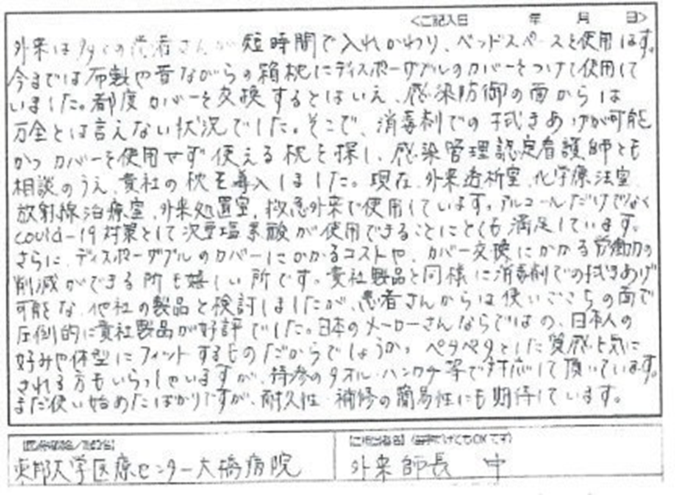 <ご記入日　年　月　日>
外来は多くの患者さんが短時間で入れかわり、ベッドスペースを使用します。
今までは布製や昔ながらの箱枕にディスポーザブルのカバーをつけて使用して
いました。都度カバーを交換するとはいえ、感染防御の面からは
万全とは言えない状況でした。そこで、消毒剤での拭きあげが可能
かつカバーを使用せず使える枕を探し、感染管理認定看護師とも
相談のうえ、貴社の枕を導入しました。現在、外来透析室、化学療法室、
放射線治療室、外来処置室、救急外来で使用しています。アルコールだけでなく
covid-19対策として次亜塩素酸が使用できることにとても満足しています。
さらに、ディスポーザブルのカバーにかかるコストや、カバー交換にかかる労働力の
削減ができる所も嬉しい所です。貴社製品と同様に消毒剤での拭きあげ
可能な、他社の製品と検討しましたが、患者さんからは使いごこちの面で
圧倒的に貴社製品が好評でした。日本のメーカーさんならではの、日本人の
好みや体型にフィットするものだからでしょうか。ペタペタとした質感を気に
される方もいらっしゃいますが、持参のタオル・ハンカチ等で対応して頂いています。
まだ使い始めたばかりですが、耐久性、補修の簡易性にも期待しています。
東邦大学医療センター大橋病院
外来師長　中